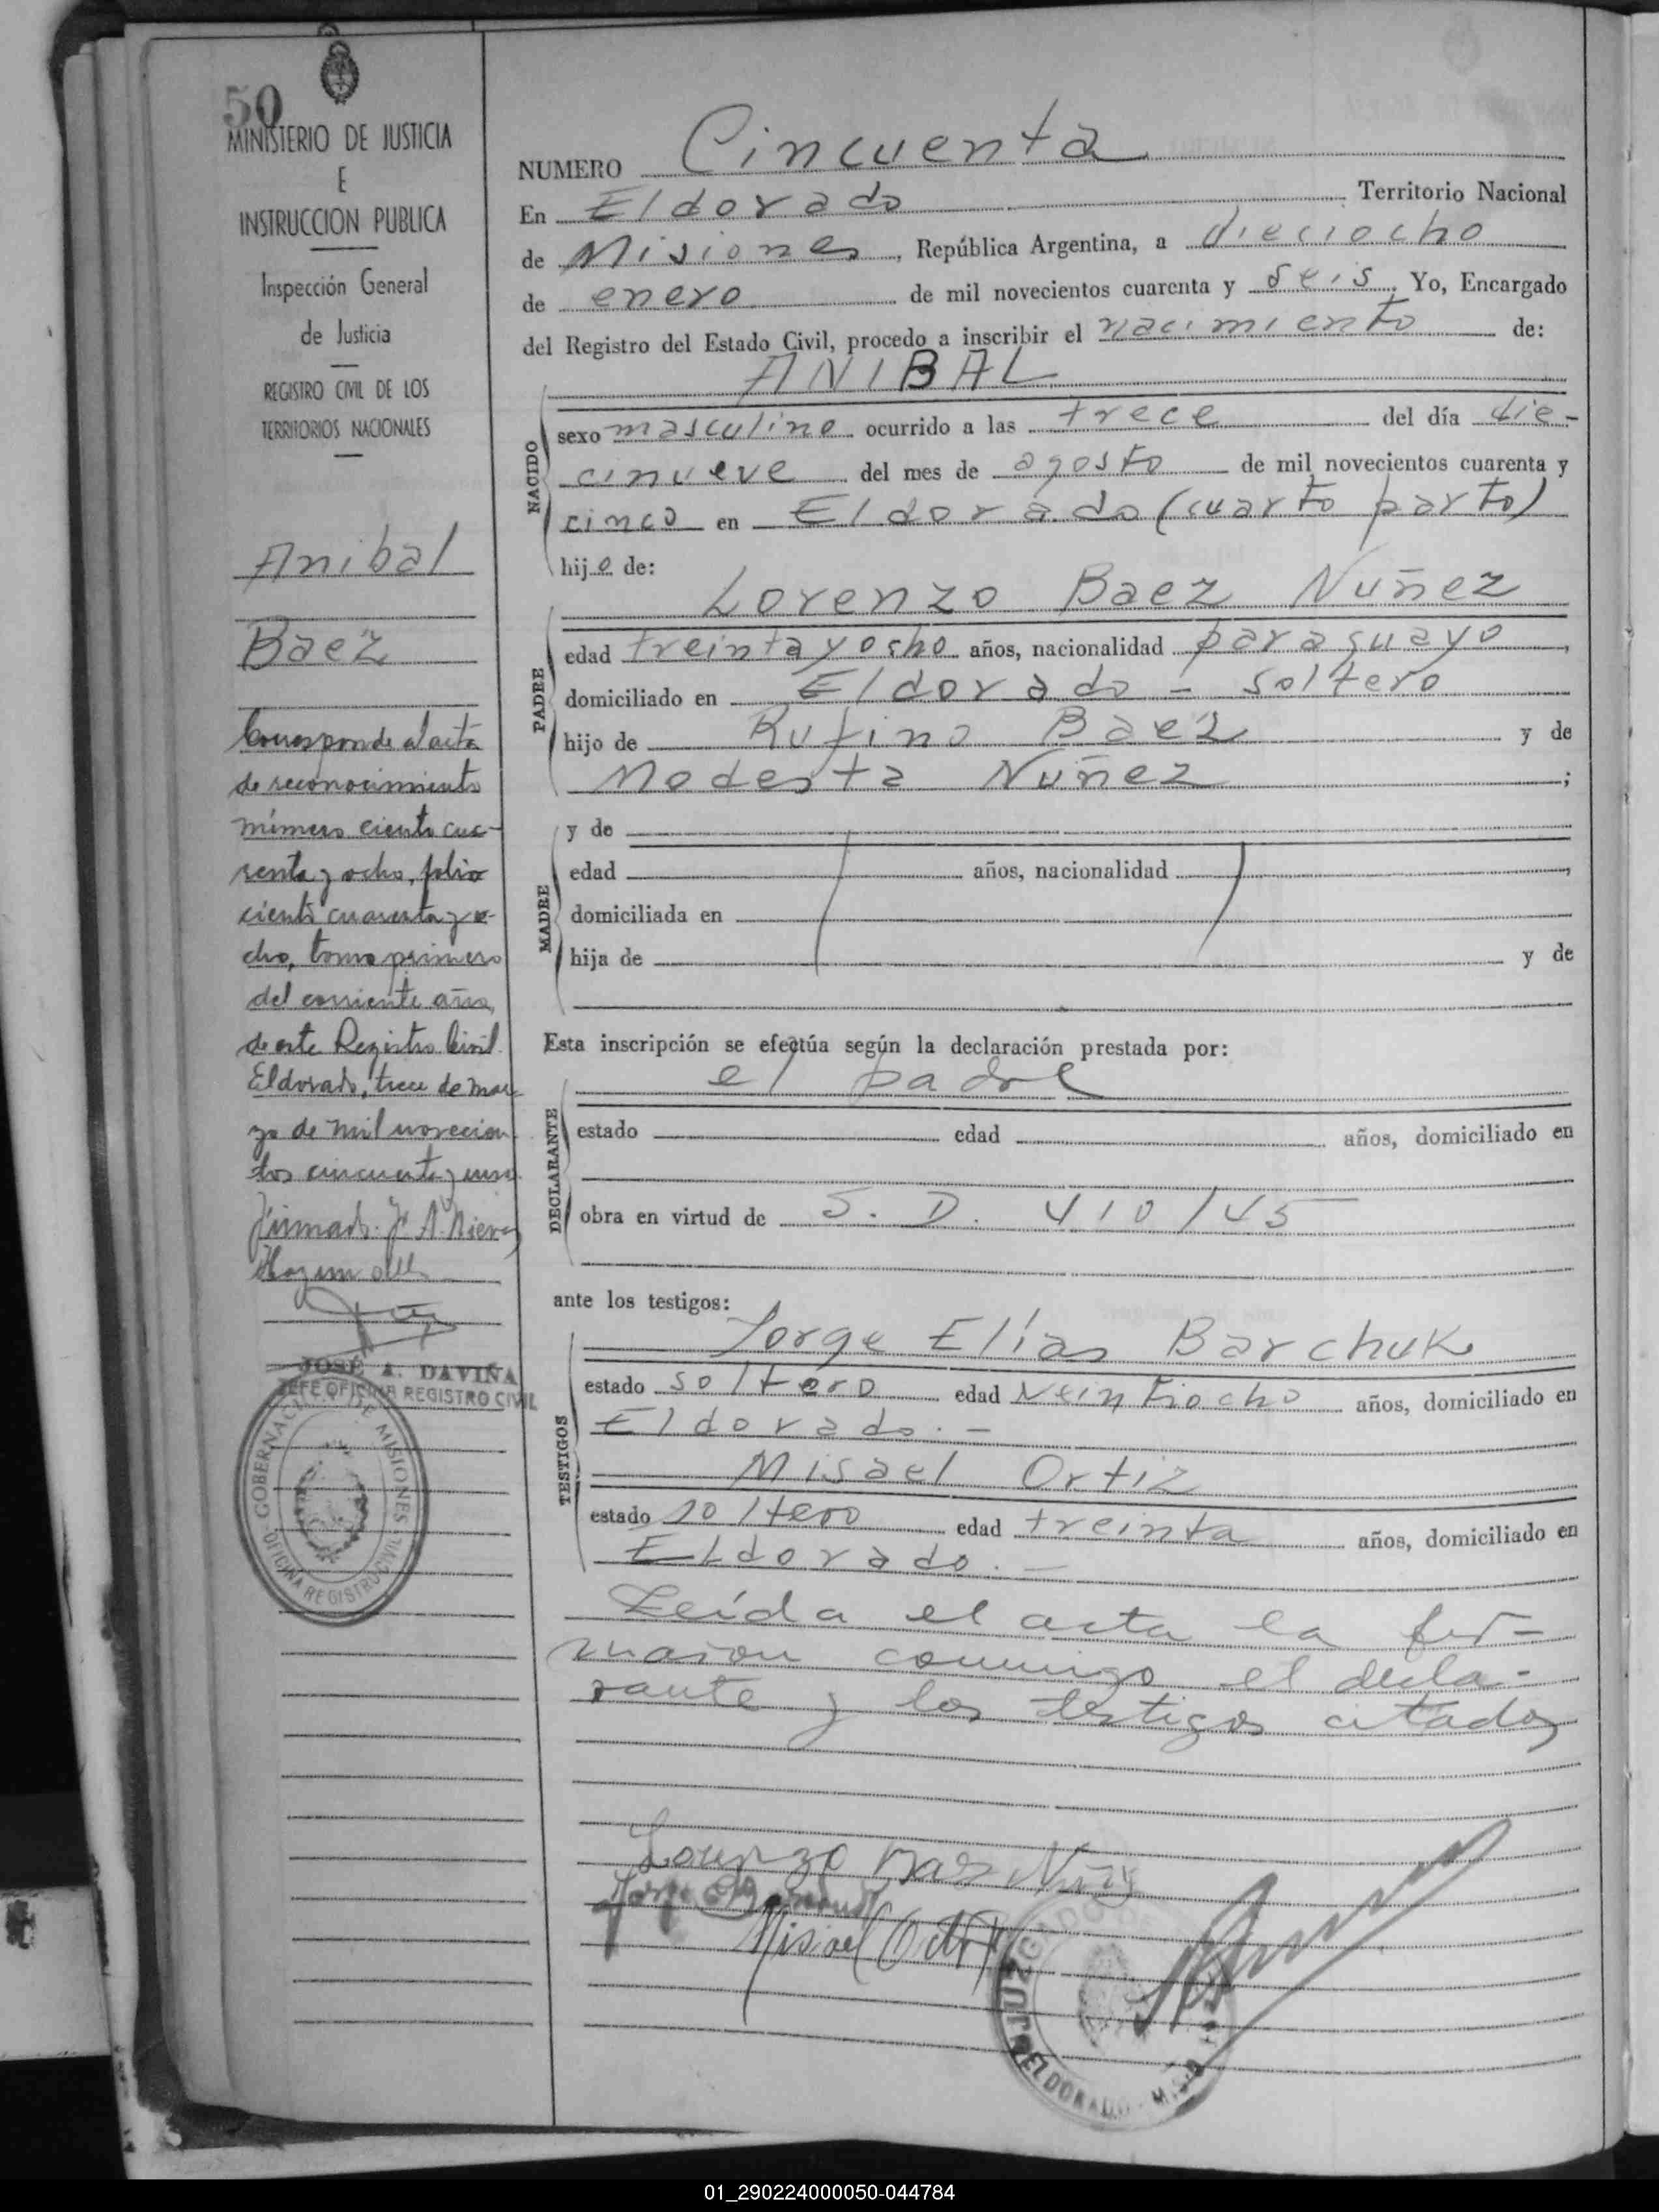 50
MINISTERIO DE JUSTICIA
E
INSTRUCCION PUBLICA
Inspección General
de Justicia
REGISTRO CIVIL DE LOS
TERRITORIOS NACIONALES
Anibal
Baez
Corresponde al acta
de reconocimiento
número ciento cua-
renta y ocho, folio
ciento cuarenta y o-
cho, tomo primero
del corriente año,
de este Registro Civil.
Eldorado, trece de mar-
zo de mil novecien-
tos cincuenta y uno.
Firmado: J. A.
JOSÉ A. DAVIÑA
JEFE OFICINA REGISTRO CIVIL
GOBERNACION DE MISIONES
OFICINA REGISTRO CIVIL
NUMERO Cincuenta
En Eldorado Territorio Nacional
de Misiones, República Argentina, a dieciocho
de enero de mil novecientos cuarenta y seis. Yo, Encargado
del Registro del Estado Civil, procedo a inscribir el nacimiento de:
NACIDO
ANIBAL
sexo masculino ocurrido a las trece del día die-
cinueve del mes de agosto de mil novecientos cuarenta y
cinco en Eldorado (cuarto parto)
hijo de:
PADRE
Lorenzo Baez Nuñez
edad treinta y ocho años, nacionalidad paraguayo,
domiciliado en Eldorado - soltero
hijo de Rufino Baez y de
Modesta Nuñez;
MADRE
y de
edad años, nacionalidad,
domiciliada en
hija de y de
Esta inscripción se efectúa según la declaración prestada por:
DECLARANTE
el padre
estado edad años, domiciliado en
obra en virtud de S. D. 410/45
ante los testigos:
TESTIGOS
Jorge Elías Barchuk
estado soltero edad veintiocho años, domiciliado en
Eldorado. -
Misael Ortiz
estado soltero edad treinta años, domiciliado en
Eldorado. -
Leída el acta la fir-
maron conmigo el decla-
rante y los testigos citados
Lorenzo Baez Nuñez
Misael Ortiz
JUZGADO DE PAZ
ELDORADO - MISIONES
01_290224000050-044784